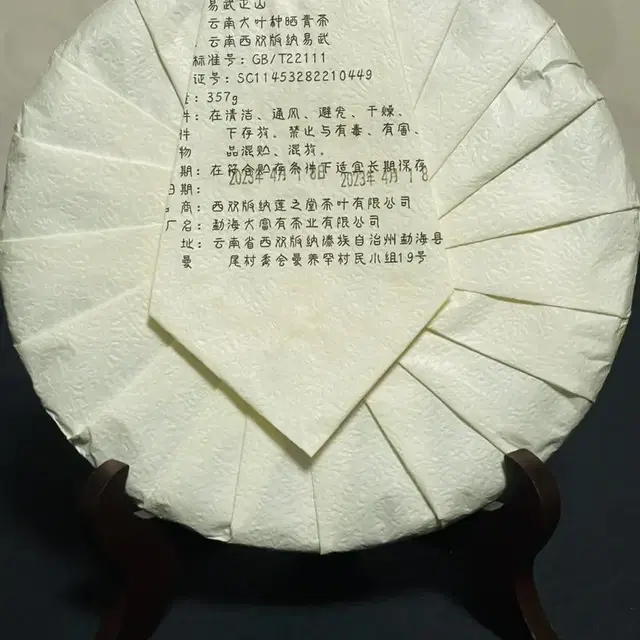 易武正山
云南大叶种晒青茶
云南西双版纳易武
标准号：GB/T22111
证号：SC11453282210449
：357g
件：在清洁、通风、避光、干燥、
件 下存放。禁止与有毒、有害、
物 品混贮、混放。
期：在符合贮存条件下适宜长期保存
日期：2023年4月18日 2023年4月18
商：西双版纳莲之堂茶叶有限公司
厂名：勐海大富有茶业有限公司
址：云南省西双版纳傣族自治州勐海县
曼 尾村委会曼养罕村民小组19号